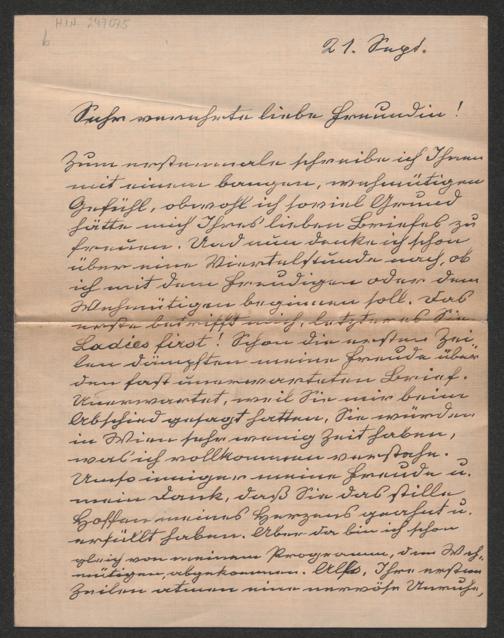 H.I.N. 247075
b
21. Sept.
Sehr verehrte liebe Freundin!
Zum erstenmale schreibe ich Ihnen
mit einem bangen, wehmütigen
Gefühl, obwohl ich soviel Grund
hätte mich Ihres lieben Briefes zu
freuen. Und nun denke ich schon
über eine Viertelstunde nach, ob
ich mit dem Freudigen oder dem
Wehmütigen beginnen soll. Das
erste betrifft mich, letzteres Sie
Ladies first! Schon die ersten Zei-
len dämpften meine Freude über
den fast unerwarteten Brief.
Unerwartet, weil Sie mir beim
Abschied gesagt hatten, Sie würden
in Wien sehr wenig Zeit haben,
was ich vollkommen verstehe.
Umso inniger meine Freude u.
mein Dank, daß Sie das stille
Hoffen meines Herzens geahnt u.
erfüllt haben. Aber da bin ich schon
gleich von meinem Programm, dem Weh-
mütigen, abgekommen. Also, Ihre ersten
Zeilen atmen eine nervöse Unruhe,